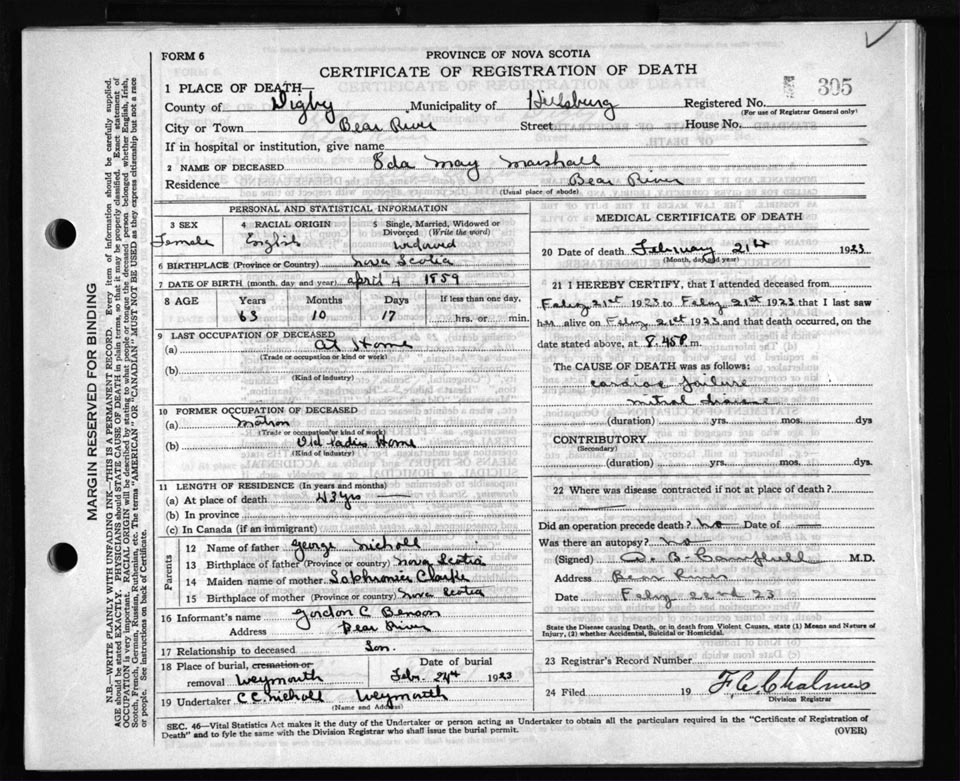 FORM 6
PROVINCE OF NOVA SCOTIA
CERTIFICATE OF REGISTRATION OF DEATH
305
1 PLACE OF DEATH—
County of Digby Municipality of Hillsburg Registered No.
(For use of Registrar General only)
City or Town Bear River Street House No.
If in hospital or institution, give name
2 NAME OF DECEASED Eda May Marshall
Residence Bear River
(Usual place of abode)
PERSONAL AND STATISTICAL INFORMATION
3 SEX 4 RACIAL ORIGIN 5 Single, Married, Widowed or Divorced (Write the word)
Female English widowed
6 BIRTHPLACE (Province or Country) Nova Scotia
7 DATE OF BIRTH (month, day, and year) April 4 1859
8 AGE Years Months Days If less than one day,
63 10 17 hrs. or min.
9 LAST OCCUPATION OF DECEASED
(a) At Home
(Trade or occupation or kind or work)
(b)
(Kind of industry)
10 FORMER OCCUPATION OF DECEASED
(a) Matron
(Trade or occupation or kind of work)
(b) Old Ladies Home
(Kind of industry)
11 LENGTH OF RESIDENCE (In years and months)
(a) At place of death 43 yrs —
(b) In province
(c) In Canada (if an immigrant)
Parents
12 Name of father George Nichall
13 Birthplace of father (Province or country) Nova Scotia
14 Maiden name of mother Sophronia Clarke
15 Birthplace of mother (Province or country) Nova Scotia
16 Informant's name Gordon C Benson
Address Bear River
17 Relationship to deceased Son.
18 Place of burial, cremation or removal Weymouth
Date of burial Feb. 24th 1923
19 Undertaker C C Nichall Weymouth
(Name and Address)
MEDICAL CERTIFICATE OF DEATH
20 Date of death February 21st 1923
(Month, day and year)
21 I HEREBY CERTIFY, that I attended deceased from
Febry 21st 1923 to Febry 21st 1923 that I last saw
her alive on Febry 21st 1923 and that death occurred, on the
date stated above, at 8.45 P.m.
The CAUSE OF DEATH was as follows:
cardiac failure
mitral disease
(duration) yrs. mos. dys.
CONTRIBUTORY
(Secondary)
(duration) yrs. mos. dys
22 Where was disease contracted if not at place of death?
Did an operation precede death? No Date of —
Was there an autopsy? No
(Signed) B. Campbell M.D.
Address Bear River
Date Febry 22nd 23
State the Disease causing Death, or in death from Violent Causes, state (1) Means and Nature of Injury, (2) whether Accidental, Suicidal or Homicidal.
23 Registrar's Record Number
24 Filed 19 Chalmers
Division Registrar
SEC. 46—Vital Statistics Act makes it the duty of the Undertaker or person acting as Undertaker to obtain all the particulars required in the "Certificate of Registration of
Death" and to fyle the same with the Division Registrar who shall issue the burial permit.
(OVER)
MARGIN RESERVED FOR BINDING
N.B.—WRITE PLAINLY WITH UNFADING INK—THIS IS A PERMANENT RECORD. Every item of information should be carefully supplied.
AGE should be stated EXACTLY. PHYSICIANS should STATE CAUSE OF DEATH in plain terms, so that it may be properly classified. Exact statement of
OCCUPATION is very important. RACIAL ORIGIN will be described by stating to what people or tongue the deceased person belonged whether English, Irish,
Scotch, French, German, Russian, Ruthenian, etc. The terms "AMERICAN" OR "CANADIAN" MUST NOT BE USED as they express citizenship but not a race
or people. See instructions on back of Certificate.